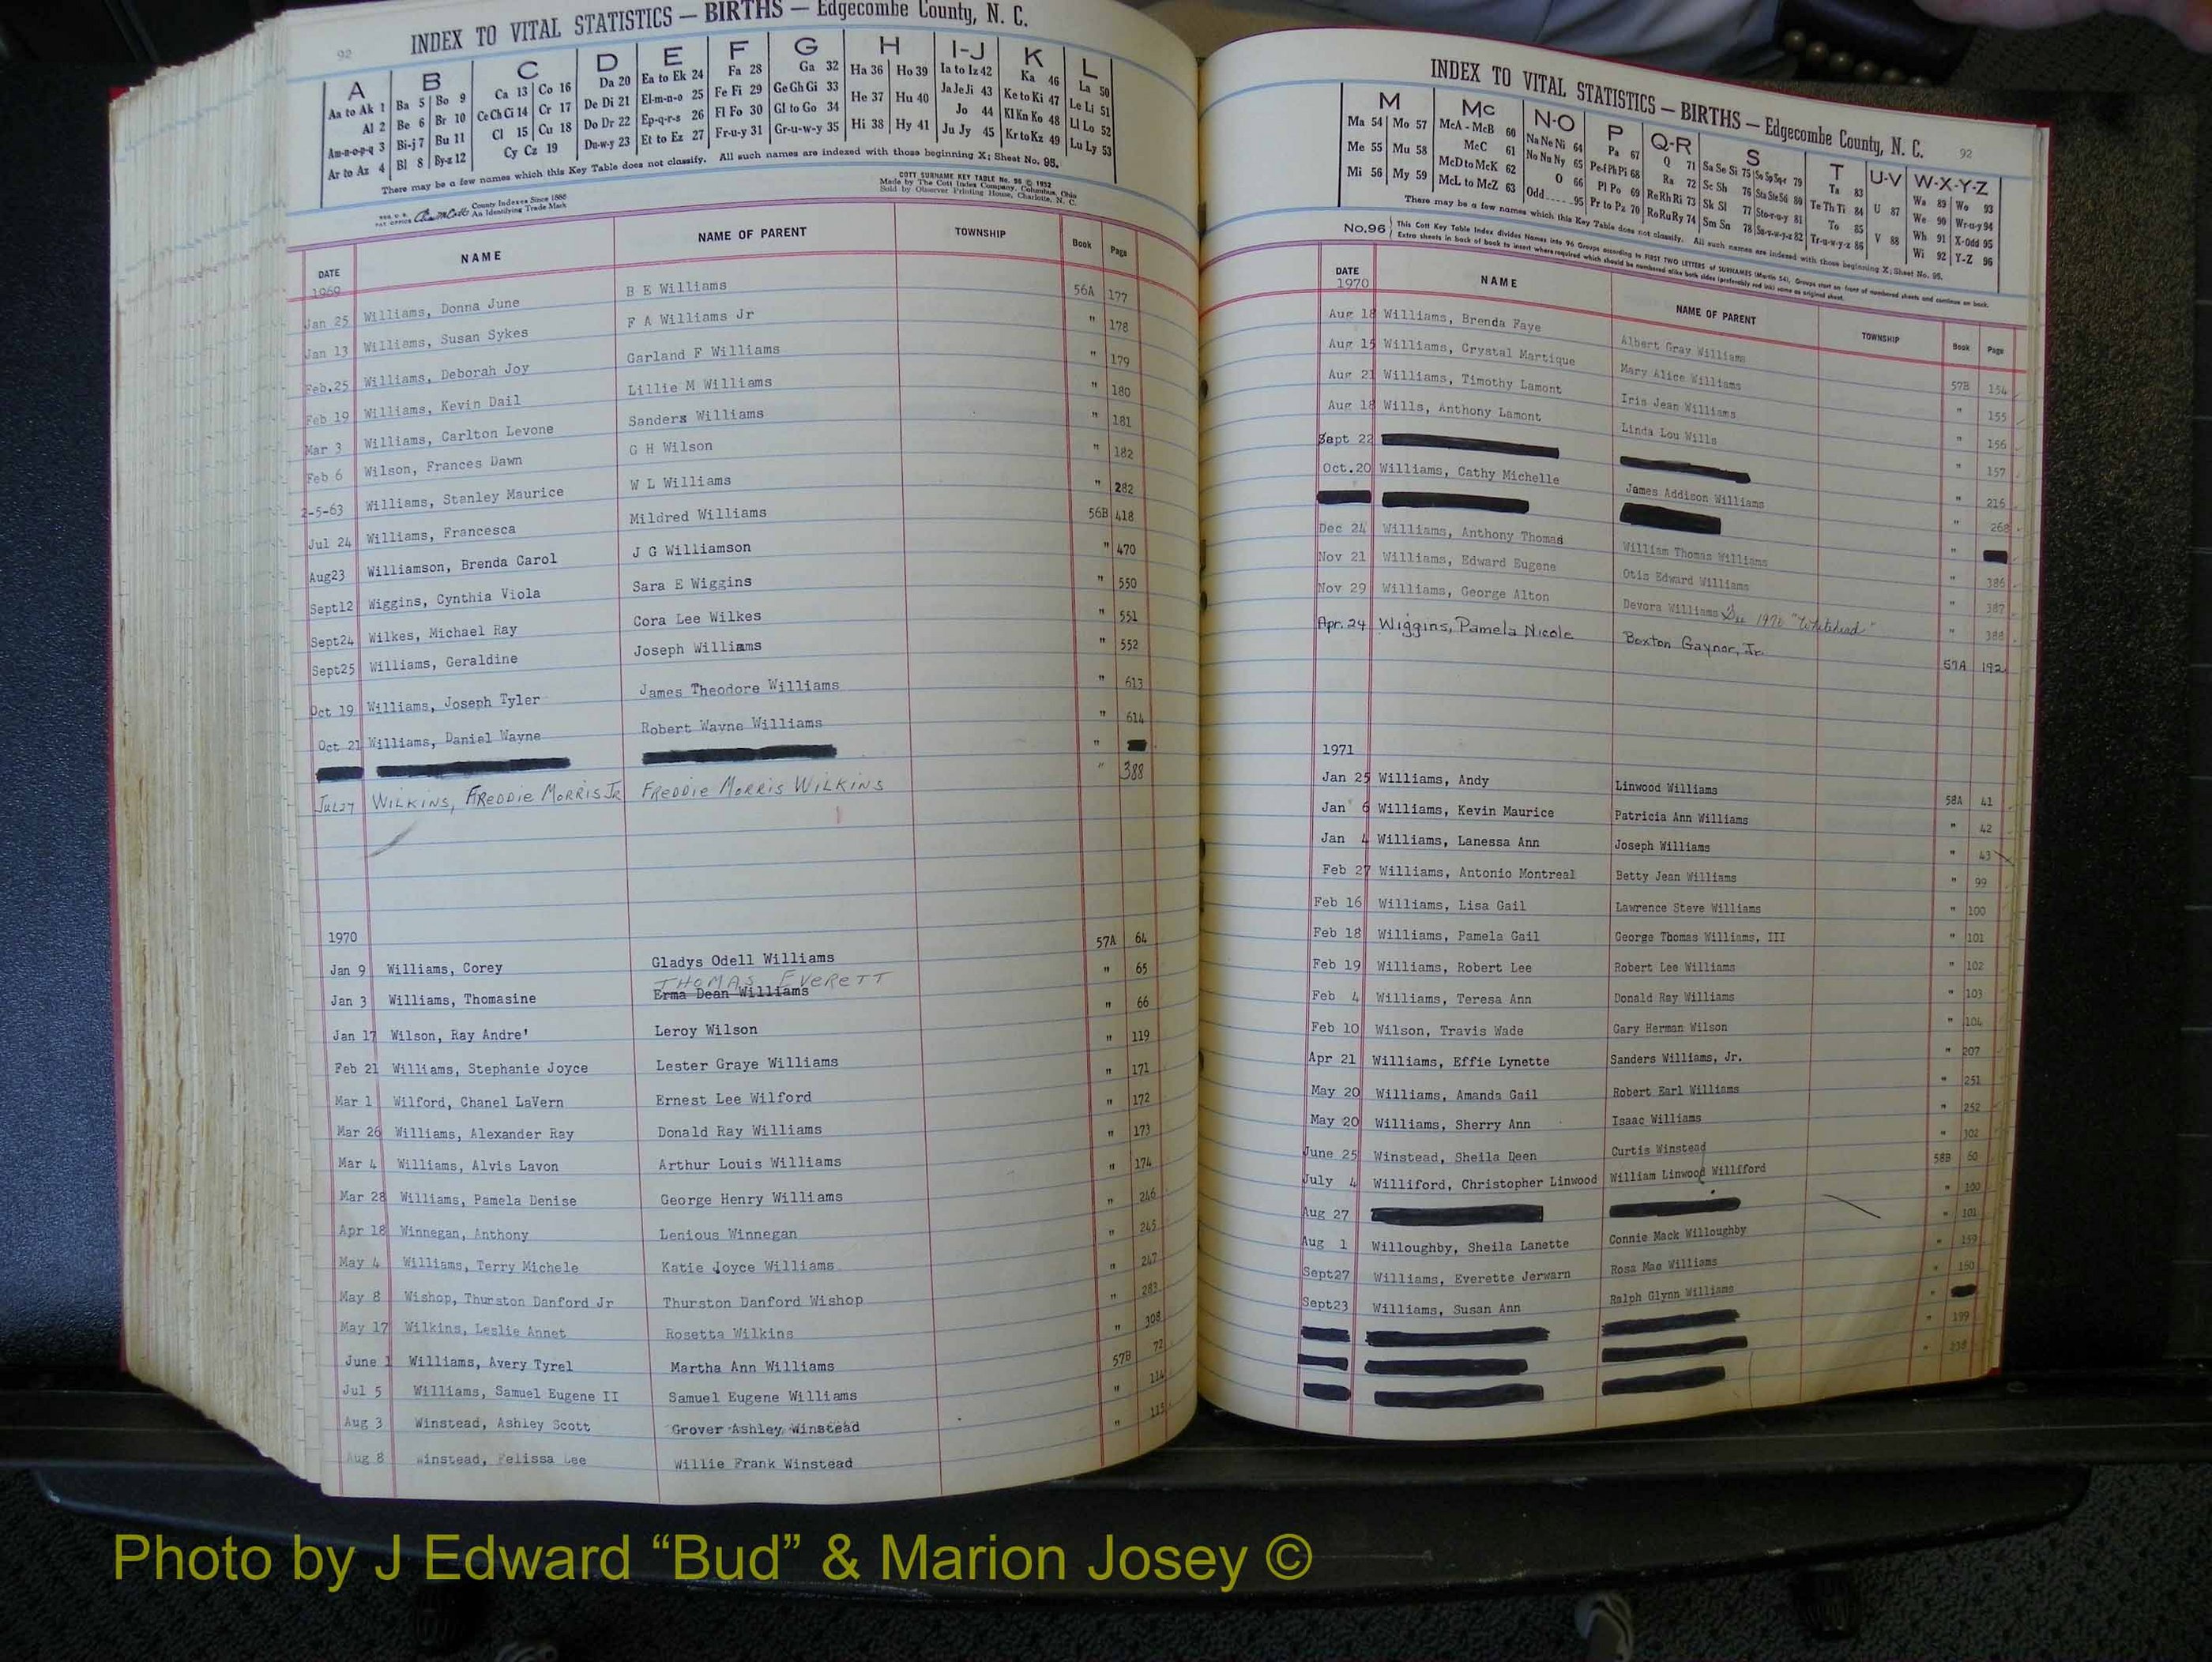 92
INDEX TO VITAL STATISTICS — BIRTHS — Edgecombe County, N. C.
A B C D E F G H I-J K L
Aa to Ak 1 Ba 5 Bo 9 Ca 13 Co 16 Da 20 Ea to Ek 24 Fa 28 Ga 32 Ha 36 Ho 39 Ia to Iz 42 Ka 46 La 50
Al 2 Be 6 Br 10 Ce Ch Ci 14 Cr 17 De Di 21 El-m-n-o 25 Fe Fi 29 Ge Gh Gi 33 He 37 Hu 40 Ja Je Ji 43 Ke to Ki 47 Le Li 51
Am-n-o-p-q 3 Bi-j 7 Bu 11 Cl 15 Cu 18 Do Dr 22 Ep-q-r-s 26 Fl Fo 30 Gl to Go 34 Hi 38 Hy 41 Jo 44 Kl Kn Ko 48 Ll Lo 52
Ar to Az 4 Bl 8 By-z 12 Cy Cz 19 Du-w-y 23 Et to Ez 27 Fr-u-y 31 Gr-u-w-y 35 Ju Jy 45 Kr to Kz 49 Lu Ly 53
There may be a few names which this Key Table does not classify. All such names are indexed with those beginning X; Sheet No. 95.
County Indexes Since 1888
An Identifying Trade Mark
COTT SURNAME KEY TABLE No. 96 © 1952
Made by The Cott Index Company, Columbus, Ohio
Sold by Observer Printing House, Charlotte, N. C.
DATE NAME NAME OF PARENT TOWNSHIP Book Page
1969
Jan 25 Williams, Donna June B E Williams 56A 177
Jan 13 Williams, Susan Sykes F A Williams Jr " 178
Feb.25 Williams, Deborah Joy Garland F Williams " 179
Feb 19 Williams, Kevin Dail Lillie M Williams " 180
Mar 3 Williams, Carlton Levone Sanders Williams " 181
Feb 6 Wilson, Frances Dawn G H Wilson " 182
2-5-63 Williams, Stanley Maurice W L Williams " 282
Jul 24 Williams, Francesca Mildred Williams 56B 418
Aug23 Williamson, Brenda Carol J G Williamson " 470
Sept12 Wiggins, Cynthia Viola Sara E Wiggins " 550
Sept24 Wilkes, Michael Ray Cora Lee Wilkes " 551
Sept25 Williams, Geraldine Joseph Williams " 552
Oct 19 Williams, Joseph Tyler James Theodore Williams " 613
Oct 21 Williams, Daniel Wayne Robert Wayne Williams " 614
"
Jul 27 Wilkins, Freddie Morris Jr Freddie Morris Wilkins " 388
1970
Jan 9 Williams, Corey Gladys Odell Williams 57A 64
Thomas Everett
Jan 3 Williams, Thomasine Erma Dean Williams " 65
Jan 17 Wilson, Ray Andre' Leroy Wilson " 66
Feb 21 Williams, Stephanie Joyce Lester Graye Williams " 119
Mar 1 Wilford, Chanel LaVern Ernest Lee Wilford " 171
Mar 26 Williams, Alexander Ray Donald Ray Williams " 172
Mar 4 Williams, Alvis Lavon Arthur Louis Williams " 173
Mar 28 Williams, Pamela Denise George Henry Williams " 174
Apr 18 Winnegan, Anthony Lenious Winnegan " 246
May 4 Williams, Terry Michele Katie Joyce Williams " 245
May 8 Wishop, Thurston Danford Jr Thurston Danford Wishop " 247
May 17 Wilkins, Leslie Annet Rosetta Wilkins " 283
June 1 Williams, Avery Tyrel Martha Ann Williams " 308
Jul 5 Williams, Samuel Eugene II Samuel Eugene Williams 57B 72
Aug 3 Winstead, Ashley Scott Grover Ashley Winstead " 114
Aug 8 Winstead, Felissa Lee Willie Frank Winstead " 115
INDEX TO VITAL STATISTICS — BIRTHS — Edgecombe County, N. C. 92
M Mc N-O P Q-R S T U-V W-X-Y-Z
Ma 54 Mo 57 McA - McB 60 Na Ne Ni 64 Pa 67 Q 71 Sa Se Si 75 So Sp Sq-r 79 Ta 83 U 87 Wa 89 Wo 93
Me 55 Mu 58 McC 61 No Nu Ny 65 Pe-f Ph Pi 68 Ra 72 Sc Sh 76 Sta Ste Sti 80 Te Th Ti 84 V 88 We 90 Wr-u-y 94
Mi 56 My 59 McD to McK 62 O 66 Pl Po 69 Re Rh Ri 73 Sk Sl 77 Sto-r-u-y 81 To 85 Wh 91 X-Odd 95
McL to McZ 63 Odd 95 Pr to Pz 70 Ro Ru Ry 74 Sm Sn 78 Su-v-w-y-z 82 Tr-u-w-y-z 86 Wi 92 Y-Z 96
There may be a few names which this Key Table does not classify. All such names are indexed with those beginning X; Sheet No. 95.
No.96 This Cott Key Table Index divides Names into 96 Groups according to FIRST TWO LETTERS of SURNAMES (Martin 54). Groups start on front of numbered sheets and continue on back.
Extra sheets in back of book to insert where required which should be numbered alike both sides (preferably red ink) same as original sheet.
DATE NAME NAME OF PARENT TOWNSHIP Book Page
1970
Aug 18 Williams, Brenda Faye Albert Gray Williams 57B 154
Aug 15 Williams, Crystal Martique Mary Alice Williams " 155
Aug 21 Williams, Timothy Lamont Iris Jean Williams " 156
Aug 18 Wills, Anthony Lamont Linda Lou Wills " 157
Sept 22 " 216
Oct.20 Williams, Cathy Michelle James Addison Williams " 268
"
Dec 24 Williams, Anthony Thomas William Thomas Williams " 386
Nov 21 Williams, Edward Eugene Otis Edward Williams " 387
Nov 29 Williams, George Alton Devora Williams See 1970 "Whitehead" " 388
Apr. 24 Wiggins, Pamela Nicole Boxton Gaynor, Jr. 57A 192
1971
Jan 25 Williams, Andy Linwood Williams 58A 41
Jan 6 Williams, Kevin Maurice Patricia Ann Williams " 42
Jan 4 Williams, Lanessa Ann Joseph Williams " 43
Feb 27 Williams, Antonio Montreal Betty Jean Williams " 99
Feb 16 Williams, Lisa Gail Lawrence Steve Williams " 100
Feb 18 Williams, Pamela Gail George Thomas Williams, III " 101
Feb 19 Williams, Robert Lee Robert Lee Williams " 102
Feb 4 Williams, Teresa Ann Donald Ray Williams " 103
Feb 10 Wilson, Travis Wade Gary Herman Wilson " 104
Apr 21 Williams, Effie Lynette Sanders Williams, Jr. " 207
May 20 Williams, Amanda Gail Robert Earl Williams " 251
May 20 Williams, Sherry Ann Isaac Williams " 252
June 25 Winstead, Sheila Deen Curtis Winstead " 302
July 4 Williford, Christopher Linwood William Linwood Williford 58B 60
Aug 27 " 100
Aug 1 Willoughby, Sheila Lanette Connie Mack Willoughby " 101
Sept27 Williams, Everette Jerwarn Rosa Mae Williams " 159
Sept23 Williams, Susan Ann Ralph Glynn Williams " 160
"
" 199
" 238
Photo by J Edward “Bud” & Marion Josey ©